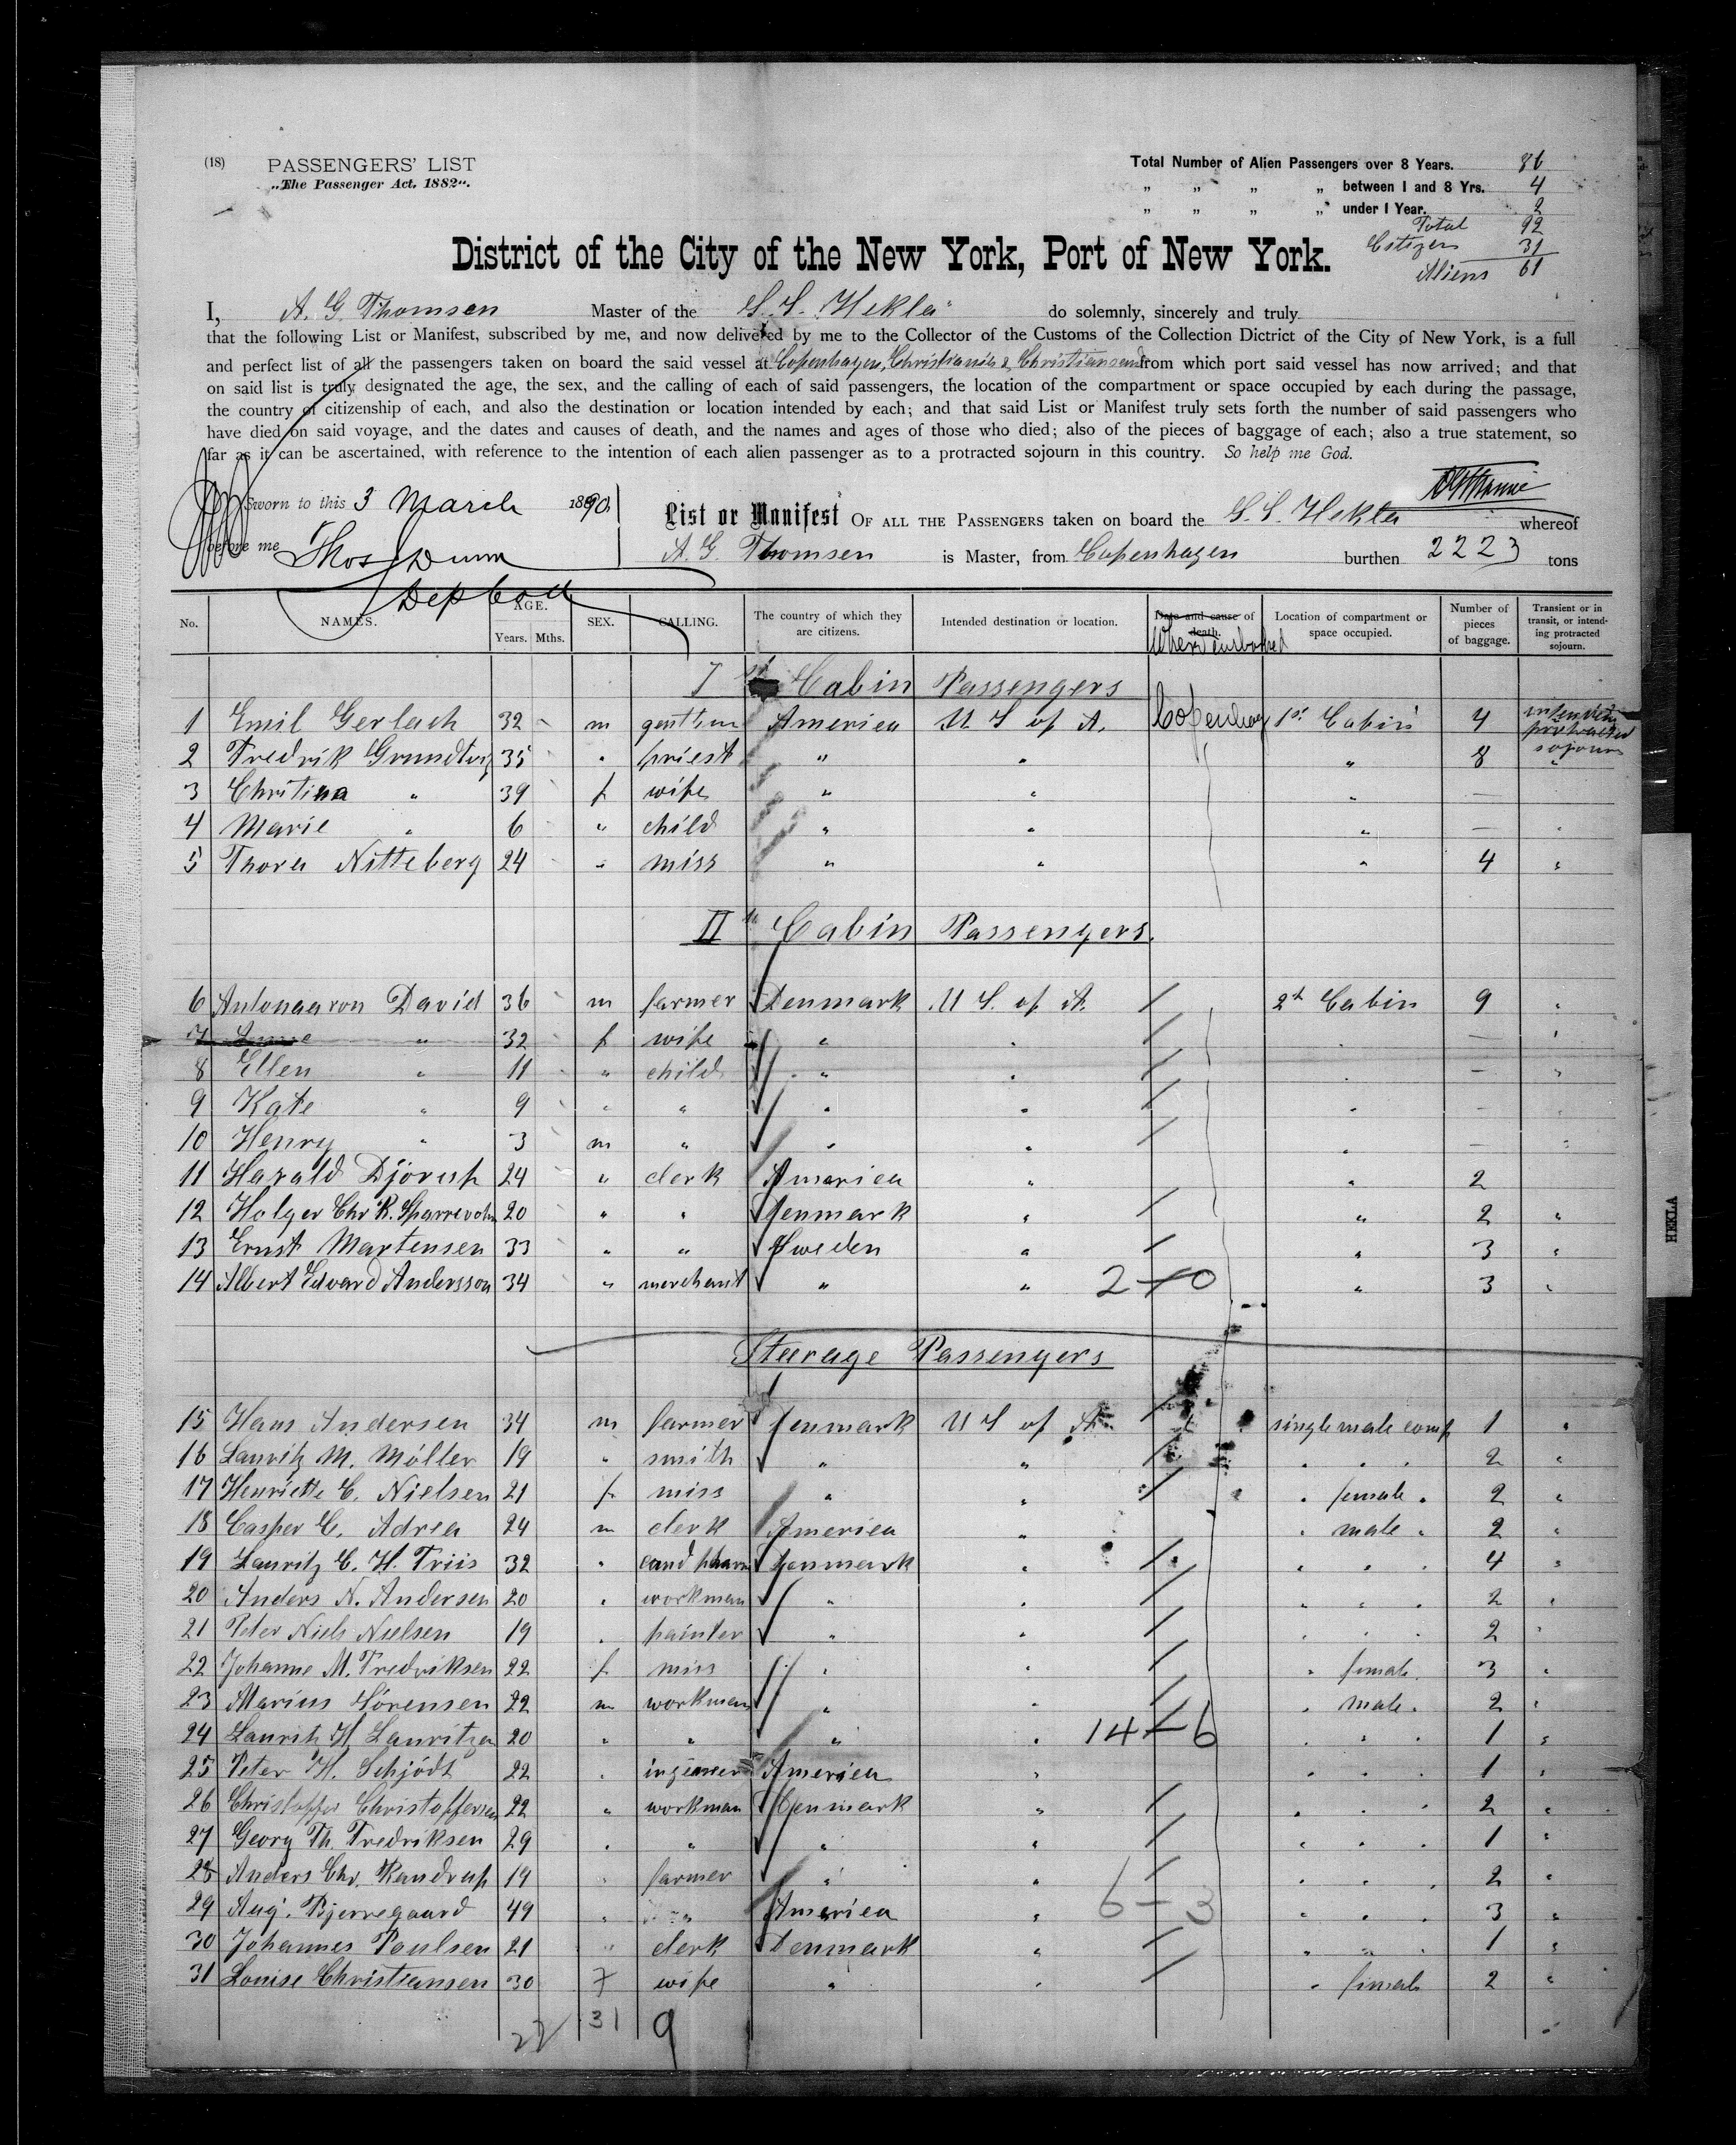 (18) PASSENGERS' LIST
„The Passenger Act, 1882“.
Total Number of Alien Passengers over 8 Years. 86
„ „ „ „ between 1 and 8 Yrs. 4
„ „ „ „ under 1 Year. 2
Total 92
Citizens 31
Aliens 61
District of the City of the New York, Port of New York.
I, A. G. Thomsen Master of the S. S. Hekla do solemnly, sincerely and truly
that the following List or Manifest, subscribed by me, and now delivered by me to the Collector of the Customs of the Collection Dictrict of the City of New York, is a full
and perfect list of all the passengers taken on board the said vessel at Copenhagen, Christiania & Christiansand from which port said vessel has now arrived; and that
on said list is truly designated the age, the sex, and the calling of each of said passengers, the location of the compartment or space occupied by each during the passage,
the country of citizenship of each, and also the destination or location intended by each; and that said List or Manifest truly sets forth the number of said passengers who
have died on said voyage, and the dates and causes of death, and the names and ages of those who died; also of the pieces of baggage of each; also a true statement, so
far as it can be ascertained, with reference to the intention of each alien passenger as to a protracted sojourn in this country. So help me God.
Sworn to this 3 March 1890
before me Thos Dunn
Dep Coll
List or Manifest OF ALL THE PASSENGERS taken on board the S. S. Hekla whereof
A. G. Thomsen is Master, from Copenhagen burthen 2223 tons
No. NAMES. AGE. Years. Mths. SEX. CALLING. The country of which they are citizens. Intended destination or location. Date and cause of death. Where embarked Location of compartment or space occupied. Number of pieces of baggage. Transient or in transit, or intending protracted sojourn.
I Cabin Passengers
1 Emil Gerlach 32 m gentleman America U S of A. Copenhag 1st Cabin 4 intending protracted sojourn
2 Fredrik Grundtvig 35 " priest " " " 8 "
3 Christina " 39 f wife " " " —
4 Marie " 6 " child " " " — "
5 Thora Nitteberg 24 " miss " " " 4 "
II Cabin Passengers.
6 Antonaaron David 36 m farmer Denmark U S. of A. 2d Cabin 9 "
7 " 32 f wife " " " — "
8 Ellen " 11 " child " " " — "
9 Kate " 9 " " " " " — "
10 Henry " 3 m " " " " — "
11 Harald Djörup 24 " clerk America " " 2
12 Holger Chr R. Sparrevohn 20 " " Denmark " " 2 "
13 Ernst Martensen 33 " " Sweden " " 3 "
14 Albert Edward Andersson 34 " merchant " " 2 — 0 " 3 "
Steerage Passengers
15 Hans Andersen 34 m farmer Denmark U S of A single male comp 1 "
16 Lauritz M. Möller 19 " smith " " " " " 2 "
17 Henriette C. Nielsen 21 f miss " " " female " 2 "
18 Casper C. Adrea 24 m clerk America " " male " 2 "
19 Lauritz C. H. Friis 32 " cand pharm Denmark " " " " 4 "
20 Anders N. Andersen 20 " workman " " " " " 2 "
21 Peter Niels Nielsen 19 " painter " " " " " 2 "
22 Johanne M. Fredriksen 22 f miss " " " female " 3 "
23 Marius Sörensen 22 m workman " " " male " 2 "
24 Lauritz H Lauritzen 20 " " " " 14 — 6 " " " 1 "
25 Peter H. Schjödt 22 " ingenieer America " " " " 1 "
26 Christoffer Christoffersen 22 " workman Denmark " " " " 2 "
27 Georg Th. Fredriksen 29 " " " " " " " 1 "
28 Anders Chr. Randrup 19 " farmer " " " " " 2 "
29 Aug. Bjerregaard 49 " " America " 6 — 3 " " " 3 "
30 Johannes Poulsen 21 " clerk Denmark " " " " 1 "
31 Louise Christiansen 30 F wife " " " female 2 "
22 31 9
HEKLA